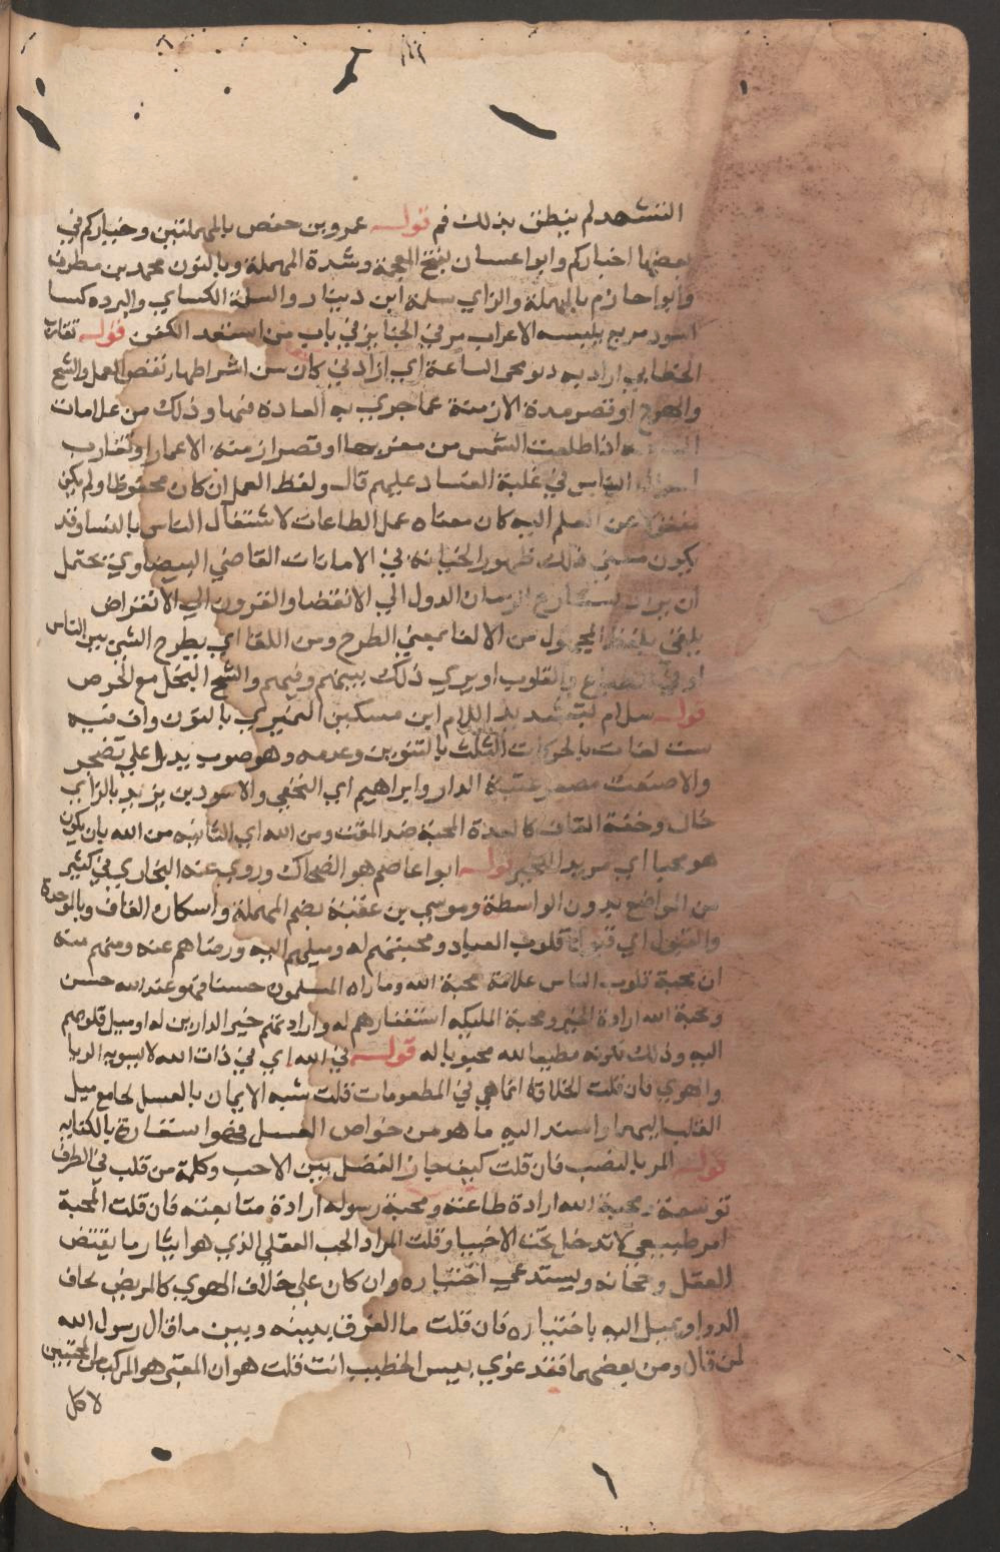 التشهد لم ينطق بذلك فم قوله عمرو بن حفص بالمهملتين وخياركم في
بعضها اخياركم وابو اغسان بفتح المعجمة وشدة المهملة وبالنون محمد بن مطرف
وابو احازم بالمهملة والزاي سلمة ابن دينار والسلة الكساي والبرده كسا
اسود مربع يلبسه الاعراب مر في الجنايز في باب من استعد الكفن قوله تقارب
الخطابي اراد به دنو مجى الساعة اي اذا دنى كان من اشراطها نقص العمل والشح
والهرج او قصر مدة الازمنة عما جرى به العادة فيها وذلك من علامات
اذا طلعت الشمس من مغربها او قصر ازمنة الاعمار او تقارب
احوال الناس في غلبة الفساد عليهم قال ولفظ العمل ان كان محفوظا ولم يكن
منقولا عن العلم اليه كان معناه عمل الطاعات لاشتغال الناس بالدنيا وقد
يكون معنى ذلك ظهور الخيانة في الامانات القاضي البيضاوي يحتمل
ان يراد بتسارع الزمان الدول الى الانقضا والقرون الى الانقراض
يلقى بلفظ المجهول من الالقا بمعنى الطرح ومن اللقا اي يطرح الشى بين الناس
او في الطباع والقلوب او يرى ذلك بينهم وفيهم والشح البخل مع الحرص
قوله سلام بتشديد اللام ابن مسكين النميري بالنون واف فيه
ست لغات بالحركات الثلث بالتنوين وعدمه وهو صوت يدل على تضجر
والاصنعت مصر عتبة الدار وابراهيم اي النخعي والاسود بن يزيد بالزاي
خال وخفة القاف كالعدة المحبة ضد المقت ومن الله اي الثابتة من الله بان يكون
هو محبا اي مريد الخير قوله ابو اعاصم هو الضحاك وروى عنه البخاري في كثير
من المواضع بدون الواسطة وموسى بن عقبة بضم المهملة واسكان القاف وبالموحدة
والقبول اي قبول قلوب العباد ومحبتهم له وميلهم اليه ورضاهم عنه ويفهم منه
ان محبة قلوب الناس علامة محبة الله وما راه المسلمون حسنا فهو عند الله حسن
ومحبة الله ارادة الخير ومحبة المليكه استغفارهم له وارادتهم خير الدارين له او ميل قلوبهم
اليه وذلك لكونه مطيعا لله محبوبا له قوله في الله اي في ذات الله لا يشوبه الريا
والهوى فان قلت الحلاوة انما هي في المطعومات قلت شبه الايمان بالعسل لجامع ميل
القلب اليهما واسند اليه ما هو من خواص العسل فهو استعارة بالكنايه
قوله المر بالنصب فان قلت كيف جاز الفصل بين الاحب وكلمة من قلت في الظرف
توسعة ومحبة الله ارادة طاعته ومحبة رسوله ارادة متابعته فان قلت المحبة
امر طبيعي لا تدخل تحت الاختيار قلت المراد الحب العقلي الذي هو ايثار ما يقتضي
العقل رجحانه ويستدعي اختياره وان كان على خلاف الهوى كالمريض يعاف
الدوا ويميل اليه باختياره فان قلت ما الفرق بينه وبين ما قال رسول الله
لمن قال ومن يعصهما فقد غوى بيس الخطيب انت قلت هو ان المعتبر هو المركب من المحبتين
لا كل